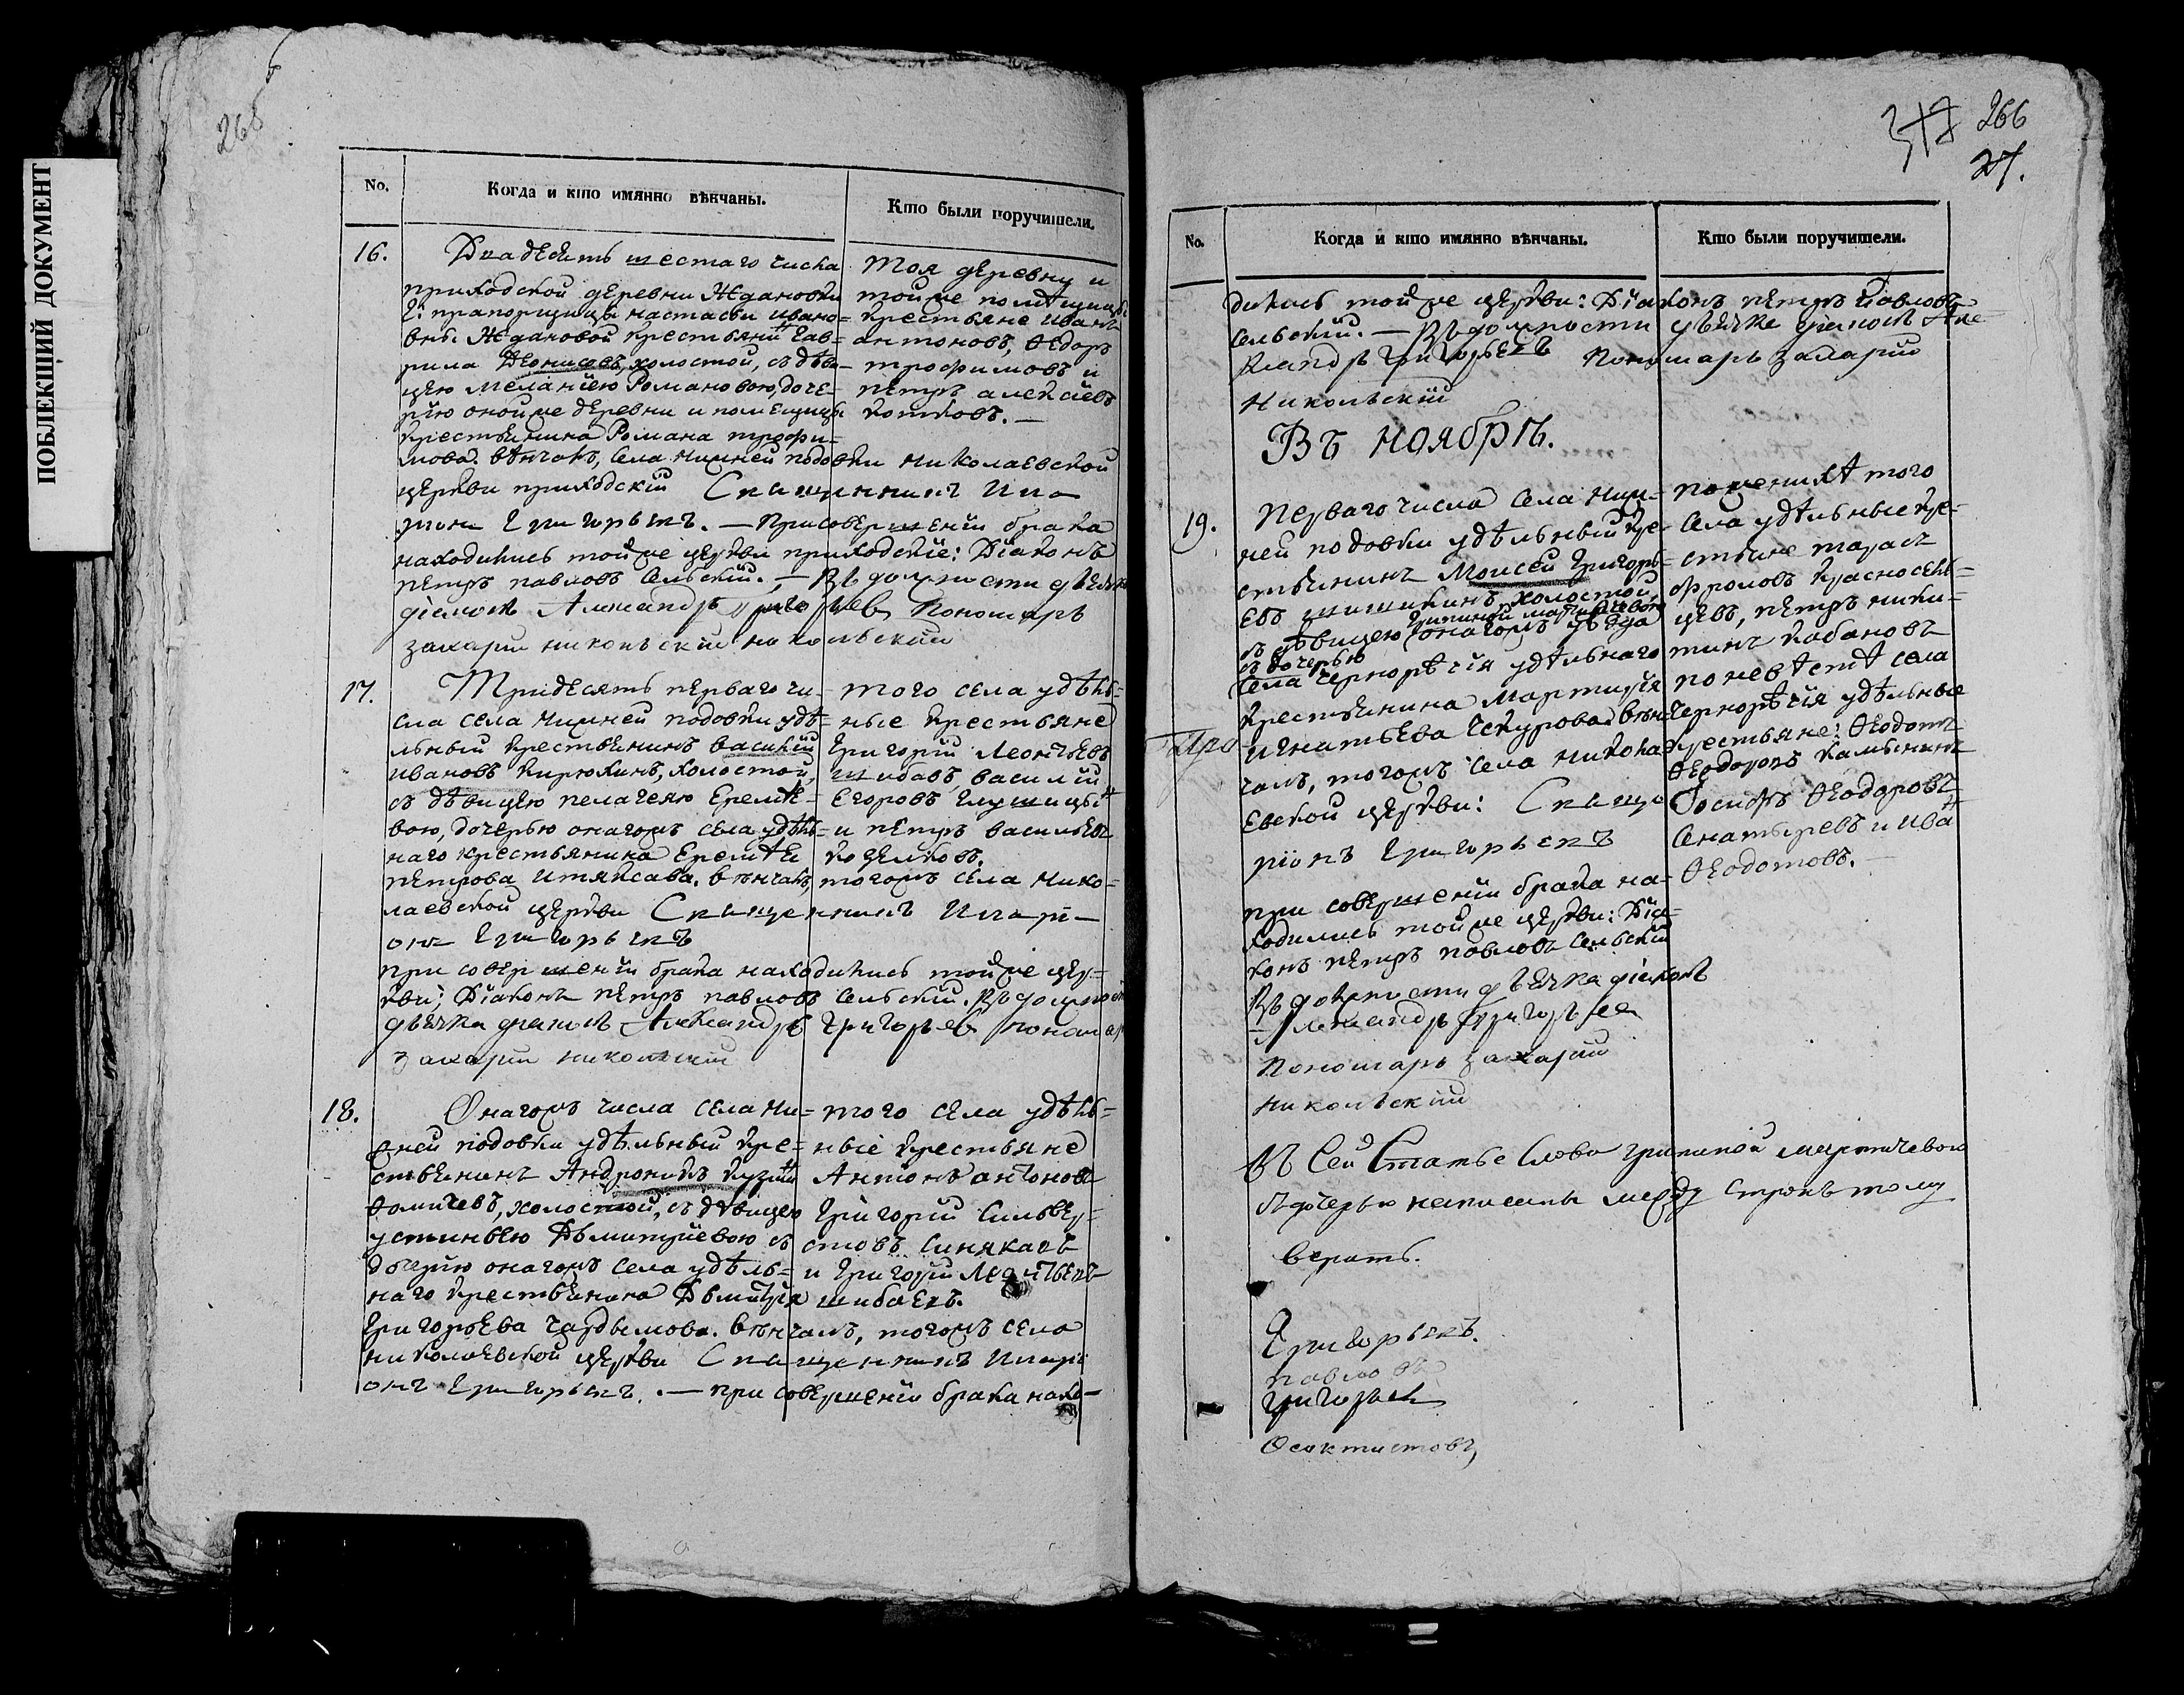 ПОБЛЕКШИЙ ДОКУМЕНТ
268
No.
Когда и кто имянно вѣнчаны.
Кто были поручители.
16.
Двадесять шестаго числа
приходской деревни Ждановки
Г: прапорщицы настасьи ивано-
вны Ждановой крестьянинъ Гав-
рила Денисовъ, холостой, съ дѣви-
цею Меланіею Романовою, доче-
рію оной же деревни и помещицы
крестьянина Романа трофи-
мова. вѣнчалъ, села нижней подовки николаевской
церкви приходскій Священникъ Ила-
ріонъ Григорьевъ. — При совершеніи брака
находились той же церкви приходскіе: Діаконъ
петръ павловъ Сельскій. — Въ должности дьячка
діаконъ Александръ Григорьев Пономарь
захарій никольский никольский
Тоя деревни и
той же помѣщицы
крестьяне Иванъ
антоновъ, Ѳедоръ
трофимовъ и
петръ алексѣевъ
котковъ. —
17.
Тридесять перваго чи-
сла села нижней подовки удѣ-
льный крестьянинъ василій
ивановъ кирюхинъ, холостой,
съ дѣвицею пелагеею Еремѣе-
вою, дочерью онагожъ села удѣль-
наго крестьянина Еремѣя
петрова итяксава. вѣнчалъ, тогожъ села Нико-
лаевской церкви Священникъ Иларі-
онъ Григорьевъ
при совершеніи брака находились той же цер-
кви: Діаконъ петръ павловъ Сельскій. Въ должности
дьячка діаконъ Александръ Григорьев понамарь
захарий никольский
того села удѣль-
ные крестьяне
Григорій Леонтьевъ
шибаевъ василій
Егоровъ глушицынъ
и петръ васильевъ
кощелковъ.
18.
Онагожъ числа села ни-
жней подовки удѣльный кре-
стьянинъ Андроникъ кузминъ
Фомичевъ, холостой, съ дѣвицею
устиньею Дьмитріевою съ
дочерію онагожъ села удѣль-
наго крестьянина Дьмитрія
Григорьева чардымова. вѣнчалъ, тогожъ села
николаевской церкви Священникъ Иларі
онъ Григорьевъ. — при совершеніи брака нахо-
того села удѣль-
ные крестьяне
Антонъ антоновъ
Григорій Сильвер-
стовъ Синякаевъ
и Григорій Леонтьевъ
шибаевъ.
318 266
27.
No.
Когда и кто имянно вѣнчаны.
Кто были поручители.
дились той же церкви: Діаконъ петръ павловъ
Сельскій. — Въ должности дьячка діаконъ Але
ксандръ Григорьевъ Пономарь захарий
Никольскій
Въ ноябрѣ.
19.
Перваго числа села ниж-
ней подовки удѣльный кре-
стьянинъ Моисей Григорь-
евъ шишикинъ, холостой,
Грипиной мартичевою
съ дѣвицею онагожъ уѣзда
съ дочерью
села Чернорѣчія удѣльнаго
крестьянина Мартирія
игнатьева Чекурова. вѣн-
чалъ, тогожъ села никола
евской церкви: Священ
ріонъ Григорьевъ
при совершеніи брака на-
ходились той же церкви: Діа-
конъ петръ павловъ Сельскій
Въ должности дьячка діаконъ
Александръ Григорьев
Пономарь захарий
никольский
по женихѣ того
села удѣльные кре-
стьяне тарасъ
фроловъ красносель-
цевъ, петръ ники-
тинъ кабановъ
по невѣстѣ села
Чернорѣчія удѣльные
крестьяне: Ѳеодотъ
Ѳеодоровъ калынинъ
Іосифъ Ѳеодоровъ
Сенатыревъ и иванъ
Ѳеодотовъ. —
Въ Сей Статье Слова грипиной мартичевою
съ дочерью написаны между Строкъ тому
верить.
Григорьевъ.
павловъ
Григорьев
Ѳеоктистовъ